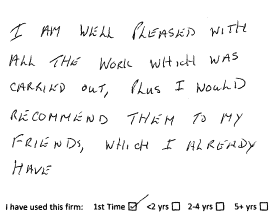 I AM WELL PLEASED WITH
ALL THE WORK WHICH WAS
CARRIED OUT, PLUS I WOULD
RECOMMEND THEM TO MY
FRIENDS, WHICH I ALREADY
HAVE
I have used this firm: 1st Time ☑ <2 yrs ☐ 2-4 yrs ☐ 5+ yrs ☐